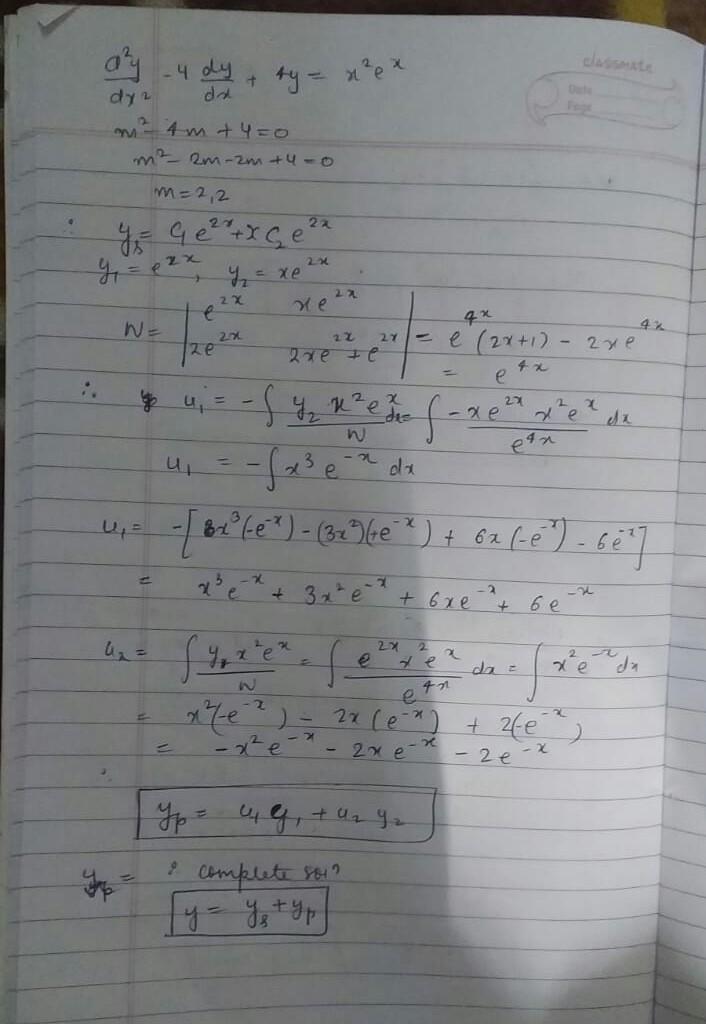 classmate
Date
Page
d²y/dx² - 4 dy/dx + 4y = x²eˣ
m² - 4m + 4 = 0
m² - 2m - 2m + 4 = 0
m = 2, 2
∴ yₛ = C₁e²ˣ + xC₂e²ˣ
y₁ = e²ˣ, y₂ = xe²ˣ.
W = | e²ˣ xe²ˣ |
| 2e²ˣ 2xe²ˣ + e²ˣ | = e⁴ˣ(2x+1) - 2xe⁴ˣ
= e⁴ˣ
∴ u₁ = -∫ y₂x²eˣ/W dx = ∫ -xe²ˣ x²eˣ/e⁴ˣ dx
u₁ = -∫x³e⁻ˣ dx
u₁ = -[x³(-e⁻ˣ) - (3x²)(+e⁻ˣ) + 6x(-e⁻ˣ) - 6e⁻ˣ]
= x³e⁻ˣ + 3x²e⁻ˣ + 6xe⁻ˣ + 6e⁻ˣ
u₂ = ∫ y₁x²eˣ/W = ∫ e²ˣx²eˣ/e⁴ˣ dx = ∫x²e⁻ˣdx
= x²(-e⁻ˣ) - 2x(e⁻ˣ) + 2(-e⁻ˣ)
= -x²e⁻ˣ - 2xe⁻ˣ - 2e⁻ˣ
yₚ = u₁y₁ + u₂y₂
yₚ = : complete solⁿ
y = yₛ + yₚ